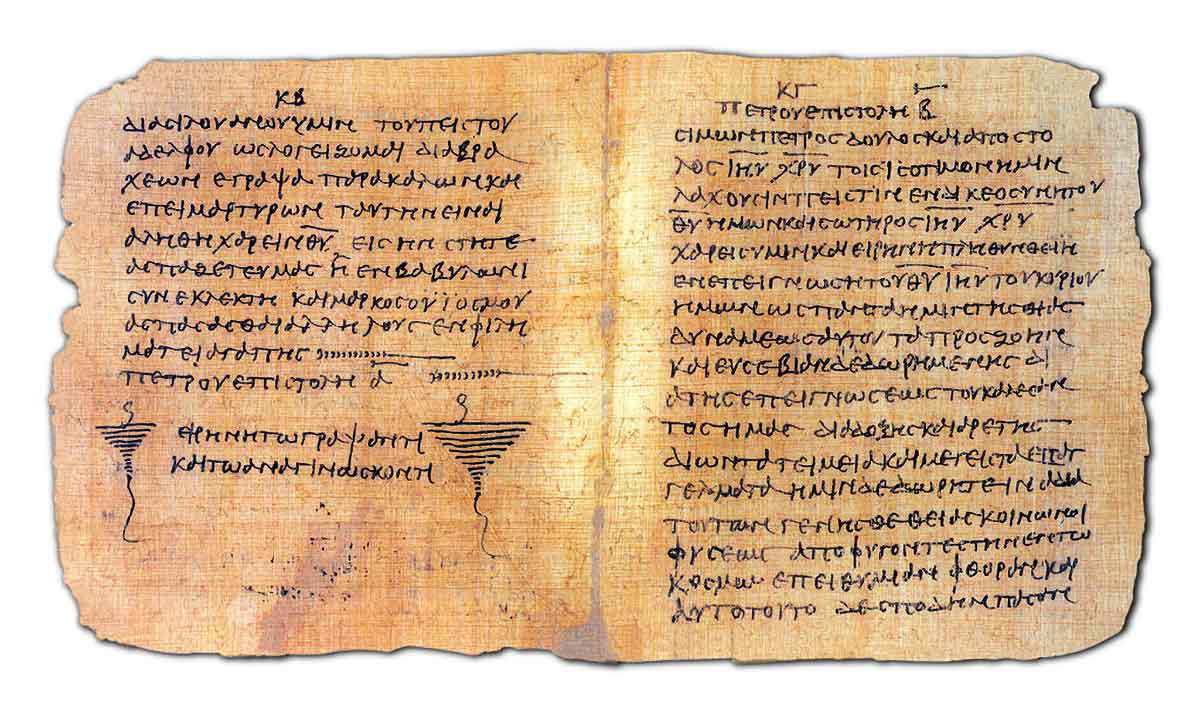 ΚΒ
διαϲιλουανουυμιν τουπειϲτου
αδελφου ωϲλογειζομαι διαβρα
χεων εγραψα παρακαλωνκαι
επειμαρτυρων ταυτηνειναι
αληθηχαρεινθ̅υ̅ ειϲηνϲτητε
αϲπαζετευμαϲ η̅ ενβαβυλωνι
ϲυνεκλεκτη καιμαρκοϲουιοϲμου
αϲπαϲαϲθαιαλληλουϲ ενφιλη
ματειαγαπηϲ
πετρουεπιϲτολη α̅
ειρηνητωγραψαντι
καιτωαναγινωϲκοντι
ΚΓ
πετρουεπιϲτολη β̅
ϲιμωνπετροϲ δουλοϲκαιαποϲτο
λοϲ ι̅η̅υ̅ χ̅ρ̅υ̅ τοιϲιϲοτιμονημιν
λαχουϲινπειϲτιν ενδικεοϲυνητου
θ̅υ̅ημωνκαιϲωτηροϲ ι̅η̅υ̅ χ̅ρ̅υ̅
χαρειϲυμινκαιειρηνηπληθυνθειη
ενεπειγνωϲητουθ̅υ̅ ι̅η̅υ̅τουκυριου
ημωνωϲπανταημιντηϲθιαϲ
δυναμεωϲαυτου ταπροϲζοην
καιευϲεβιανδεδωρημενηϲ δι
ατηϲεπειγνωϲεωϲτουκαλεϲαν
τοϲημαϲ διαδοξηϲκαιαρετηϲ
διωντατειμειακαιμεγειϲταεπαγ
γελματα ημινδεδωρητειιναδια
τουτωνγενηϲθεθειαϲκοινωνοι
φυϲεωϲ αποφυγοντεϲτηνεντω
κοϲμω επειθυμιαν φθοραν και
αυτοτουτο δεϲπουδηνπαϲαν